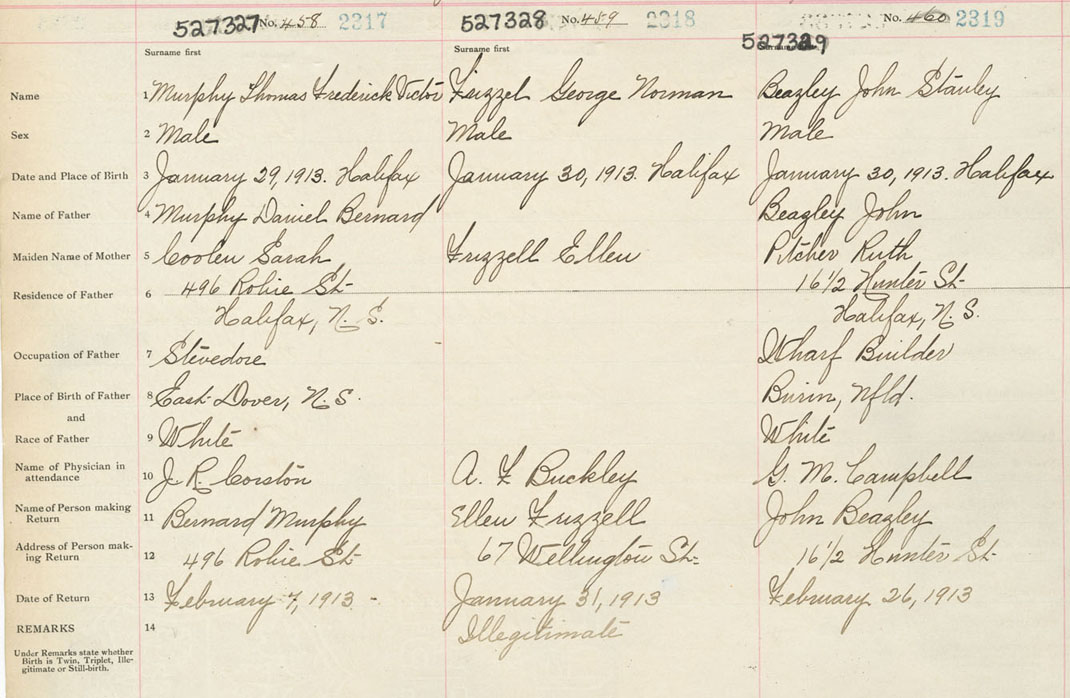 527327 No. 458 2317 527328 No. 459 2318 527329 No. 460 2319
Surname first Surname first
Name 1 Murphy Thomas Frederick Victor Frizzel George Norman Beazley John Stanley
Sex 2 Male Male Male
Date and Place of Birth 3 January 29, 1913. Halifax January 30, 1913. Halifax January 30, 1913. Halifax
Name of Father 4 Murphy Daniel Bernard Beazley John
Maiden Name of Mother 5 Coolen Sarah Frizzell Ellen Pitcher Ruth
Residence of Father 6 496 Robie St- 16 1/2 Hunter St-
Halifax, N. S. Halifax, N. S.
Occupation of Father 7 Stevedore Wharf Builder
Place of Birth of Father 8 East Dover, N.S. Burin, Nfld.
and
Race of Father 9 White White
Name of Physician in
attendance 10 J. R. Corston A. F Buckley G. M. Campbell
Name of Person making
Return 11 Bernard Murphy Ellen Frizzell John Beazley
Address of Person mak-
ing Return 12 496 Robie St- 67 Wellington St- 16 1/2 Hunter St-
Date of Return 13 February 7, 1913 - January 31, 1913 February 26, 1913
REMARKS 14 Illegitimate
Under Remarks state whether
Birth is Twin, Triplet, Ille-
gitimate or Still-birth.